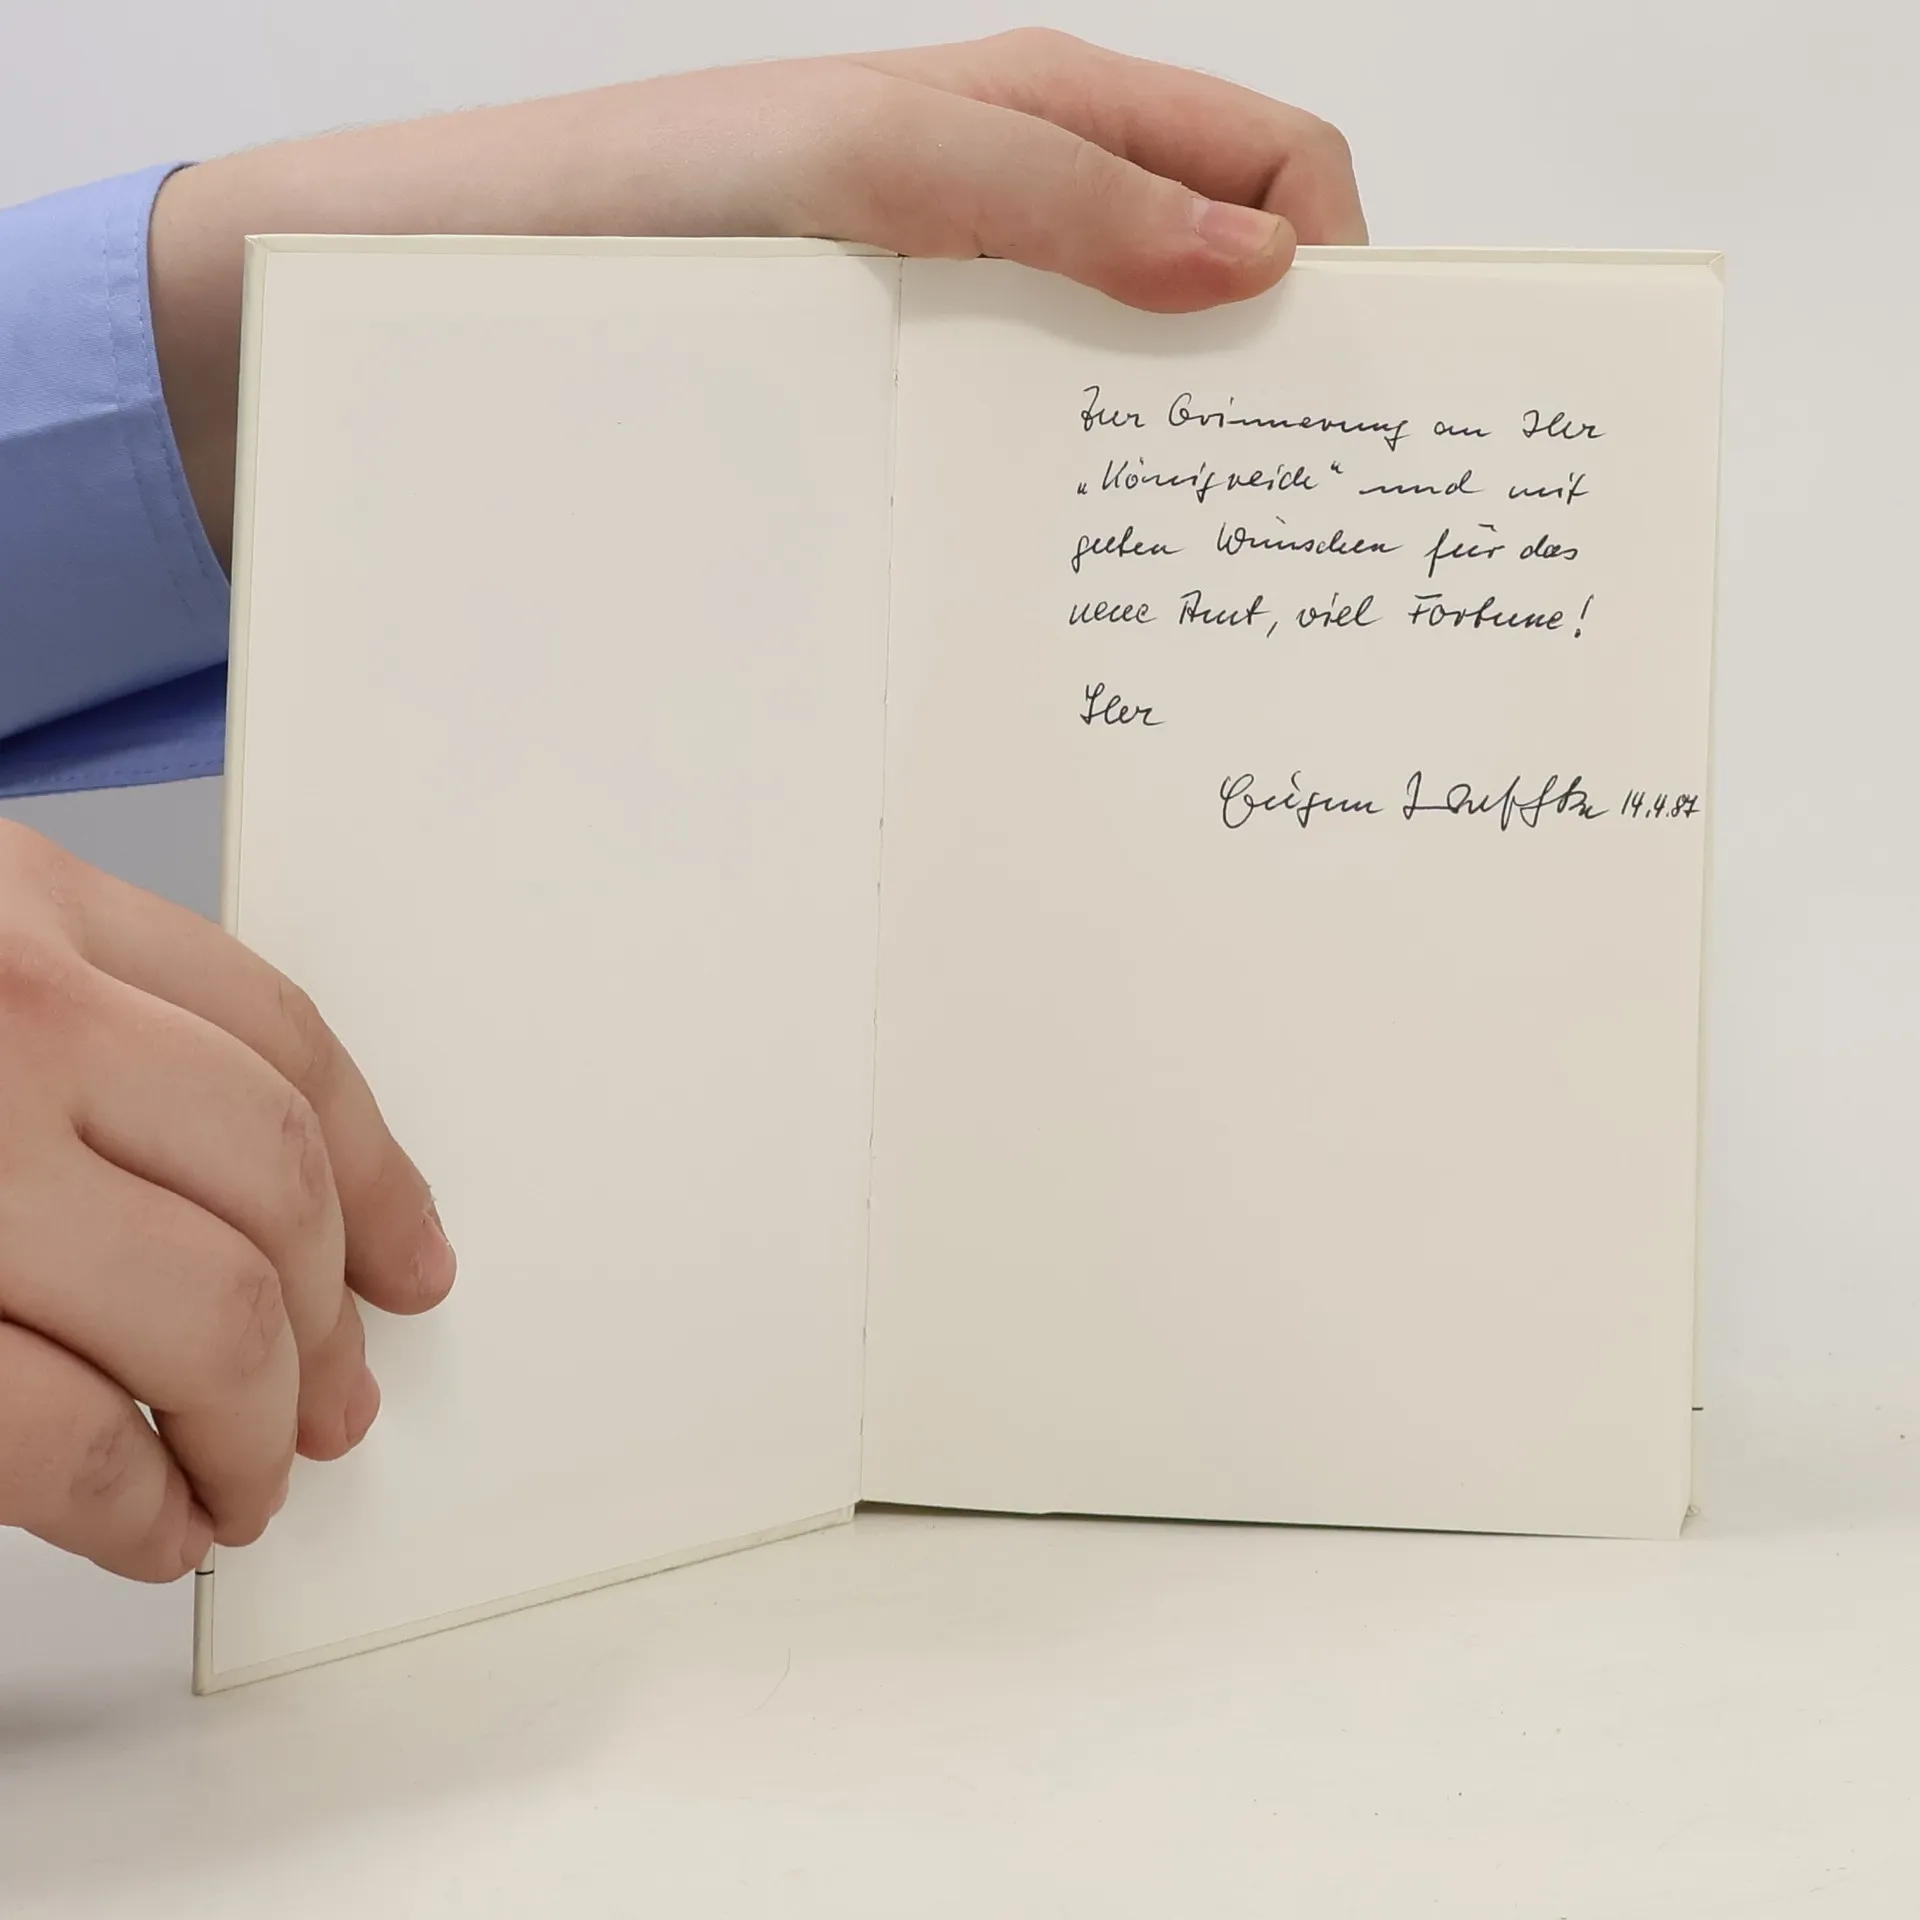 Zur Erinnerung an Ihr
„Königreich“ und mit
guten Wünschen für das
neue Amt, viel Fortune!
Ihr
Eugen 14.4.87